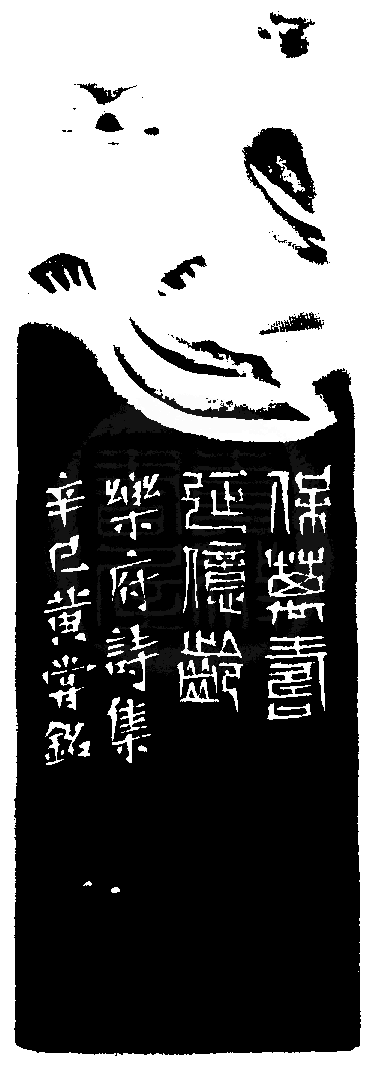 保萬壽
延億齡
樂府詩集
辛巳黃嘗銘